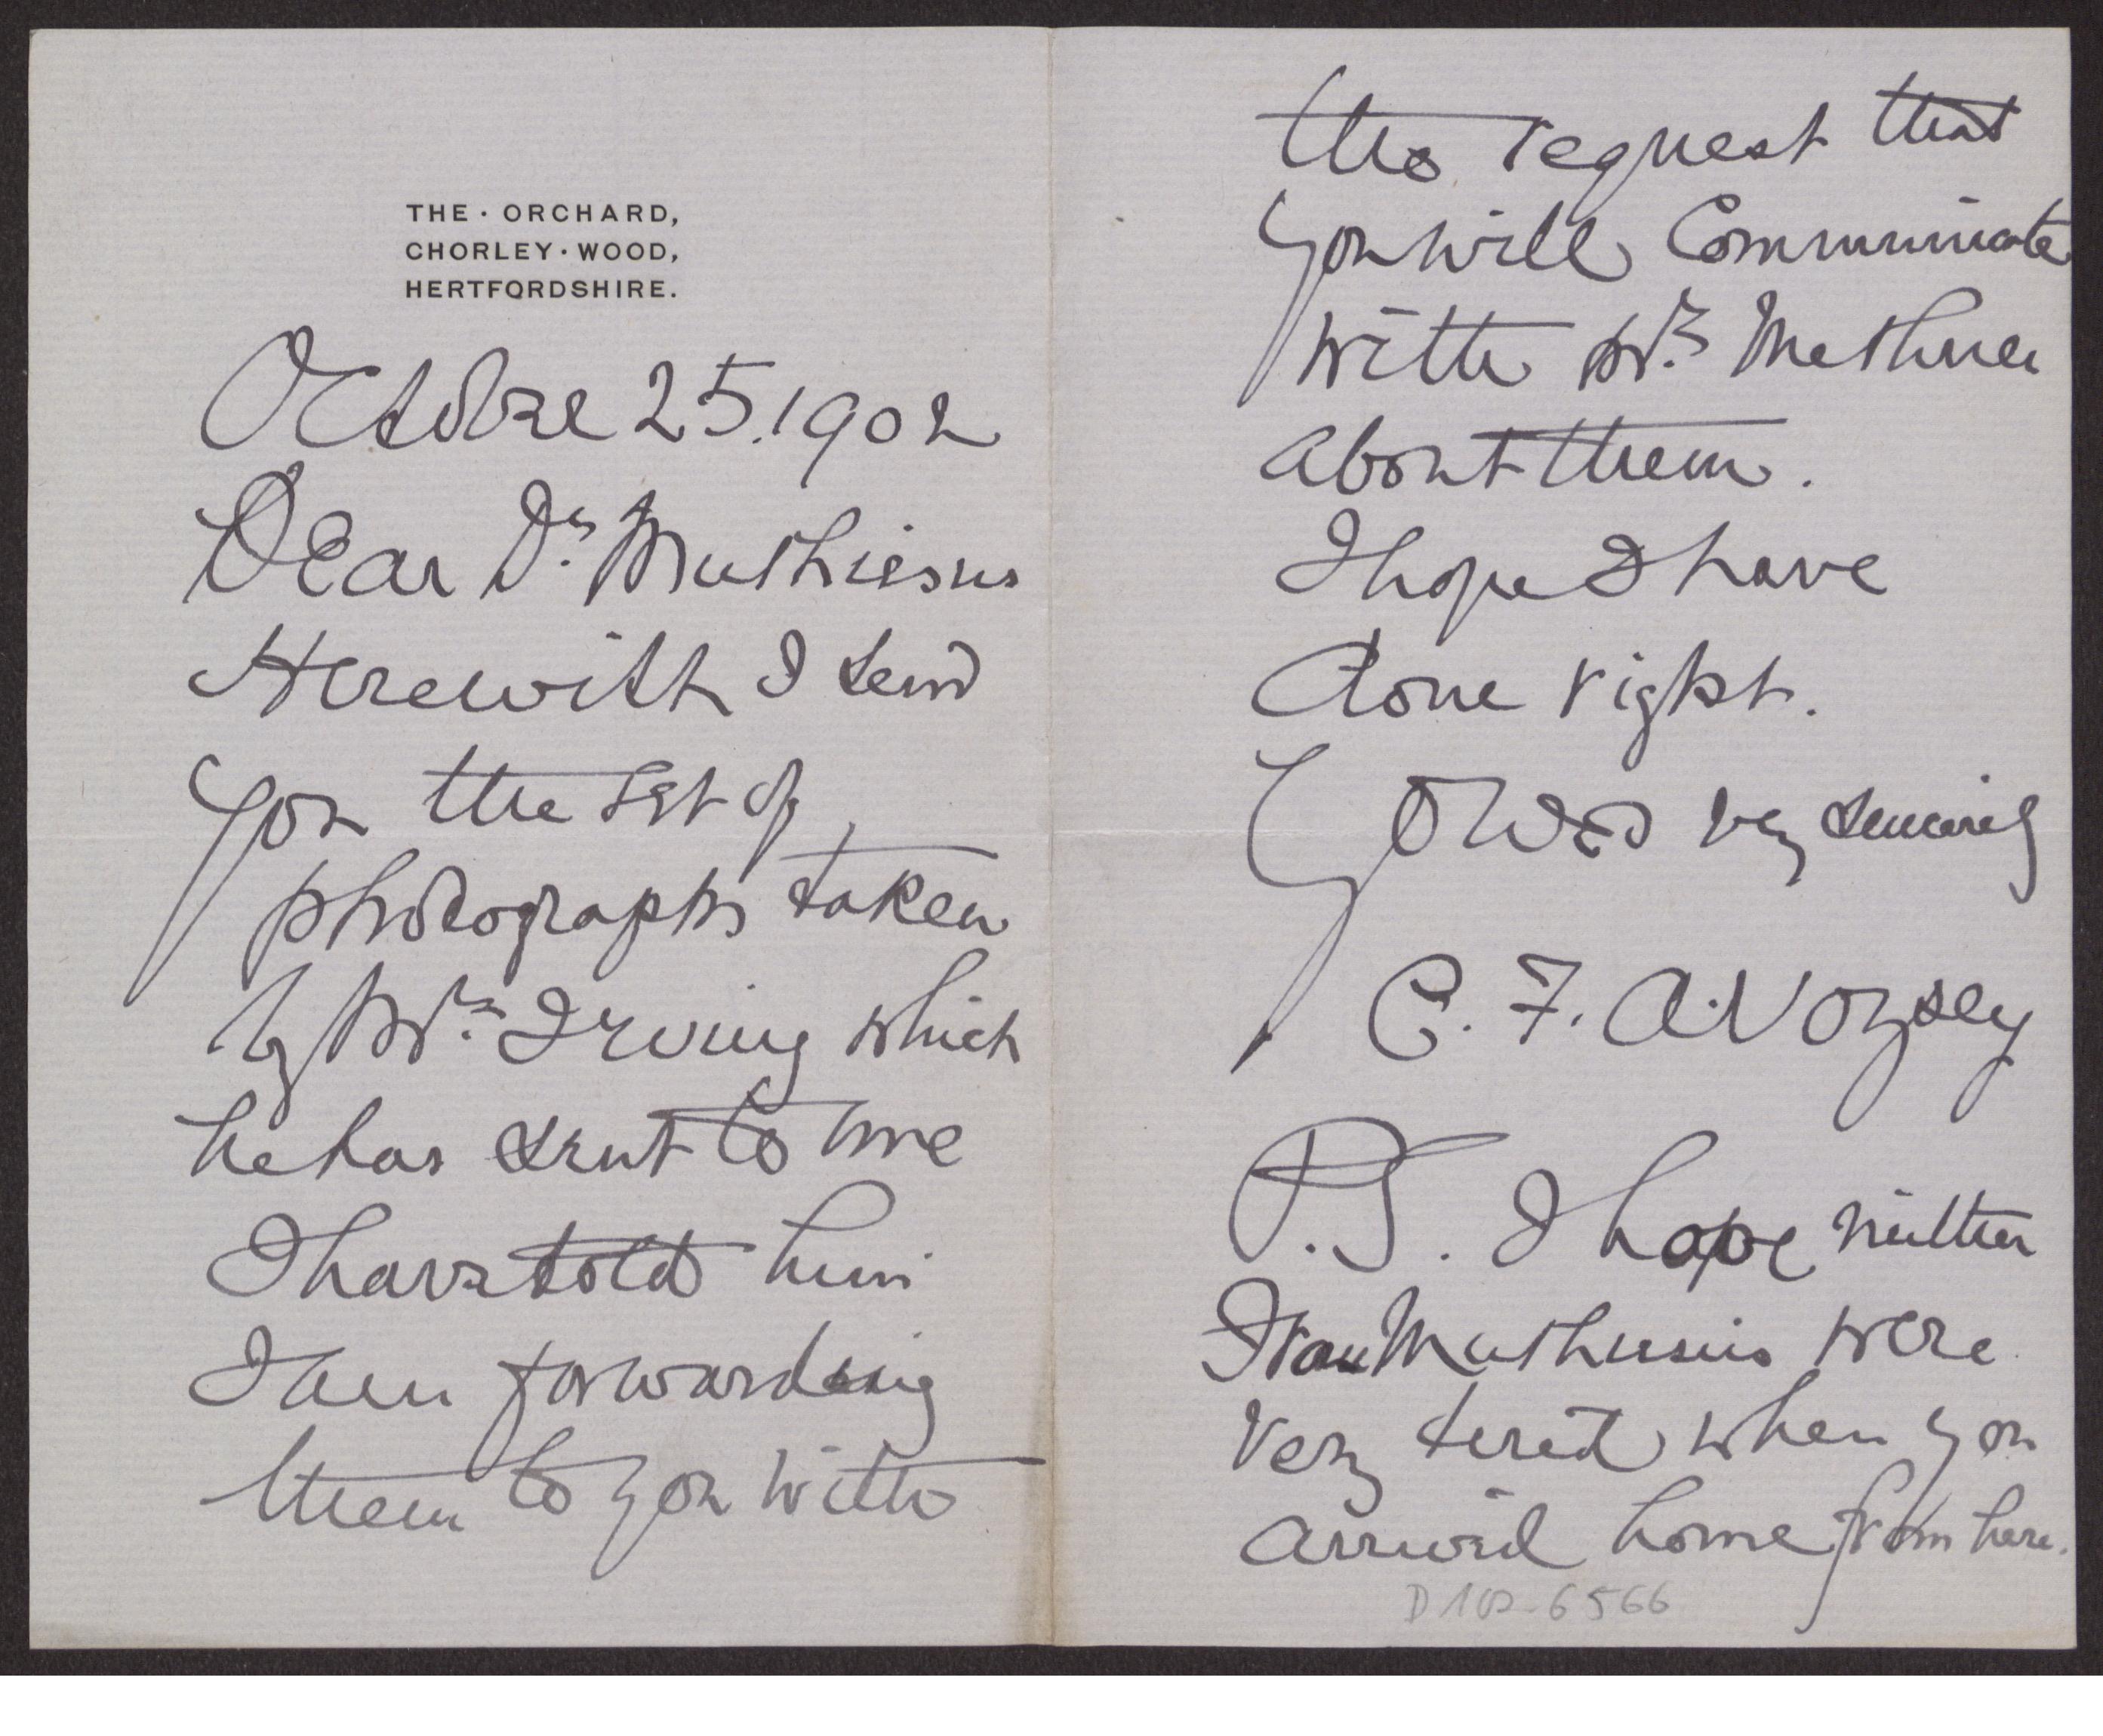 THE · ORCHARD,
CHORLEY · WOOD,
HERTFORDSHIRE.
October 25. 1902
Dear Dr. Muthesius
Herewith I send
you the set of
photographs taken
by Mr. Irving which
he has sent to me
I have told him
I am forwarding
them to you with
the request that
you will Communicate
with Mr.
about them.
I hope I have
done right.
Yours very sincerely
C. F. A. Voysey
P.S. I hope neither
Frau Muthesius were
very tired when you
arrived home from here.
D 102-6566